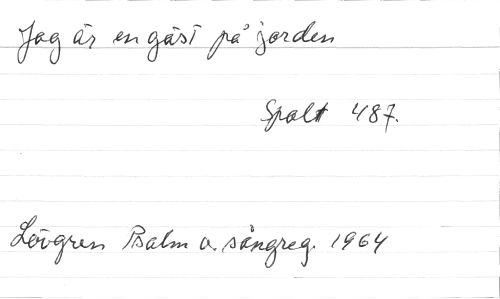 Jag är en gäst på jorden
Spalt 487.
Lövgren Psalm o. sångreg. 1964